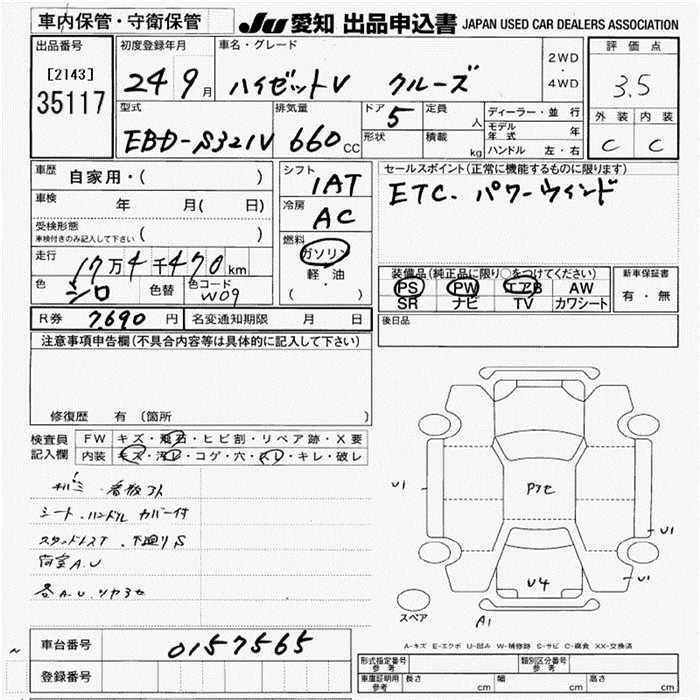 車内保管・守衛保管
JU 愛知 出品申込書 JAPAN USED CAR DEALERS ASSOCIATION
出品番号
[2143]
35117
初度登録年月
24 9 月
車名・グレード
ハイゼットV クルーズ
2WD
・
4WD
評価点
3.5
外装 内装
C C
型式
EBD-S321V
排気量
660 CC
ドア
5
形状
定員
人
積載
kg
ディーラー・並 行
モデル年式 年
ハンドル 左・右
車歴
自家用・( )
車検 年 月( 日)
受検形態
車検付きのみ記入して下さい ( )
走行
17万4千470km
色
シロ
色替
色コード
W09
シフト
IAT
冷房
AC
燃料
ガソリン
軽・油
( )
セールスポイント(正常に機能するものに限ります)
ETC. パワーウインド
装備品(純正品に限り○をつけてください)
PS PW エアB AW
SR ナビ TV カワシート
新車保証書
有・無
R券 7,690 円 名変通知期限 月 日
後日品
注意事項申告欄(不具合内容等は具体的に記入して下さい)
修復歴 有(箇所 )
検査員
記入欄
FW キズ・飛石・ヒビ割・リペア跡・X要
内装 キズ・汚レ・コゲ・穴・スレ・キレ・破レ
シート.ハンドル カバー付
下廻りS
荷室A.U
各A.U.
U1
Pアセ
U1
U4
U1
スペア
A1
A-キズ E-エクボ U-凹み W-補修跡 S-サビ C-腐食 XX-交換済
車台番号
0157565
登録番号
型式指定番号
参考
類別区分番号
参考
車庫証明用
参考
長さ cm 幅 cm 高さ cm